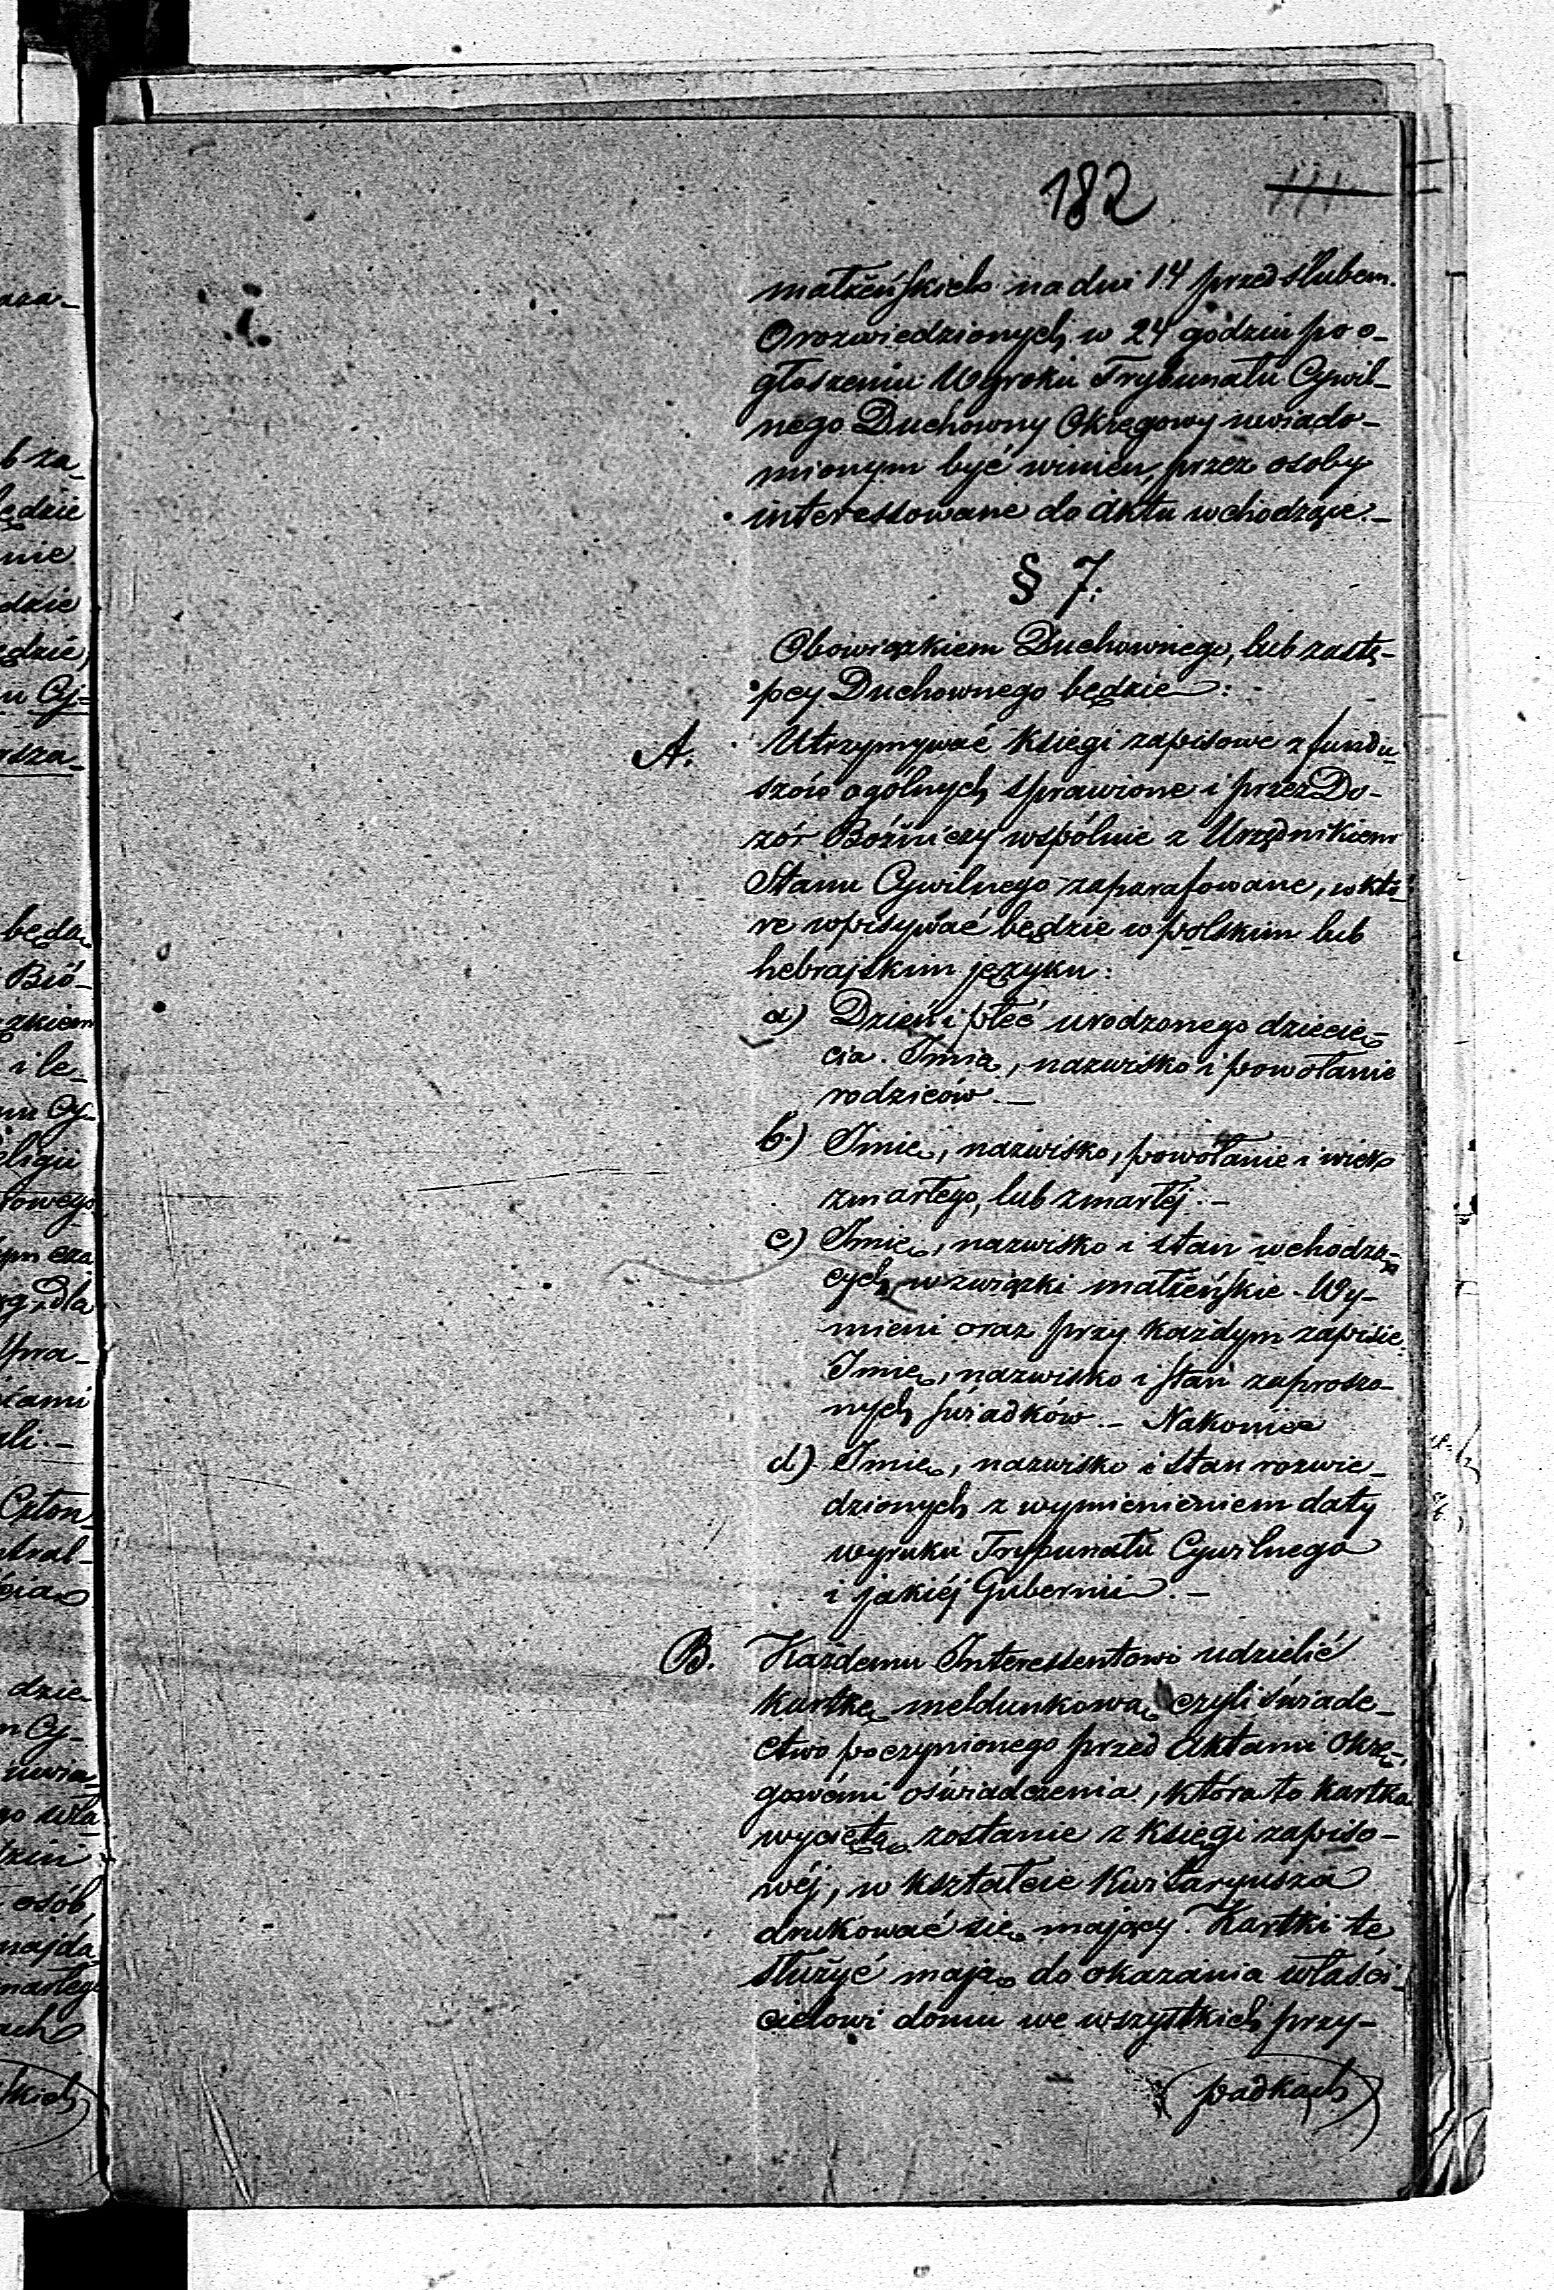 182
111
małżeńskich na dni 14 przed ślubem.
O rozwiedzionych w 24 godzin po o-
głoszeniu Wyroku Trybunału Cywil-
nego Duchowny Okręgowy uwiado-
mionym być winien, przez osoby
interessowane do Aktu wchodzące.–
§ 7.
Obowiązkiem Duchownego, lub zastę-
pcy Duchownego będzie:
A. Utrzymywać księgi zapisowe z fundu-
szów ogólnych sprawione i przez Do-
zór Bóżniczy wspólnie z Urzędnikiem
Stanu Cywilnego zaparafowane, w któ-
re wpisywać będzie w polskim lub
hebrajskim języku:
a) Dzień i płeć urodzonego dziecię-
cia. Imię, nazwisko i powołanie
rodziców.–
b.) Imię, nazwisko, powołanie i wiek
zmarłego, lub zmarłéj.–
c) Imię, nazwisko i stan wchodzą-
cych w związki małżeńskie - Wy-
mieni oraz przy każdym zapisie
Imię, nazwisko i stan zaproszo-
nych świadków.– Nakoniec
d) Imię, nazwisko i stan rozwie-
dzionych z wymienieniem daty
wyroku Trybunału Cywilnego
i jakiéj Gubernii.–
B. Każdemu Interessentowi udzielić
kartkę meldunkową czyli świade-
ctwo poczynionego przed Aktami Okrę-
gowémi oświadczenia, która to kartka
wyciętą zostanie z księgi zapiso-
wéj, w kształcie Kwitaryusza
drukować się mający. Kartki te
służyć mają do okazania właści-
cielowi domu we wszystkich przy-
(padkach)